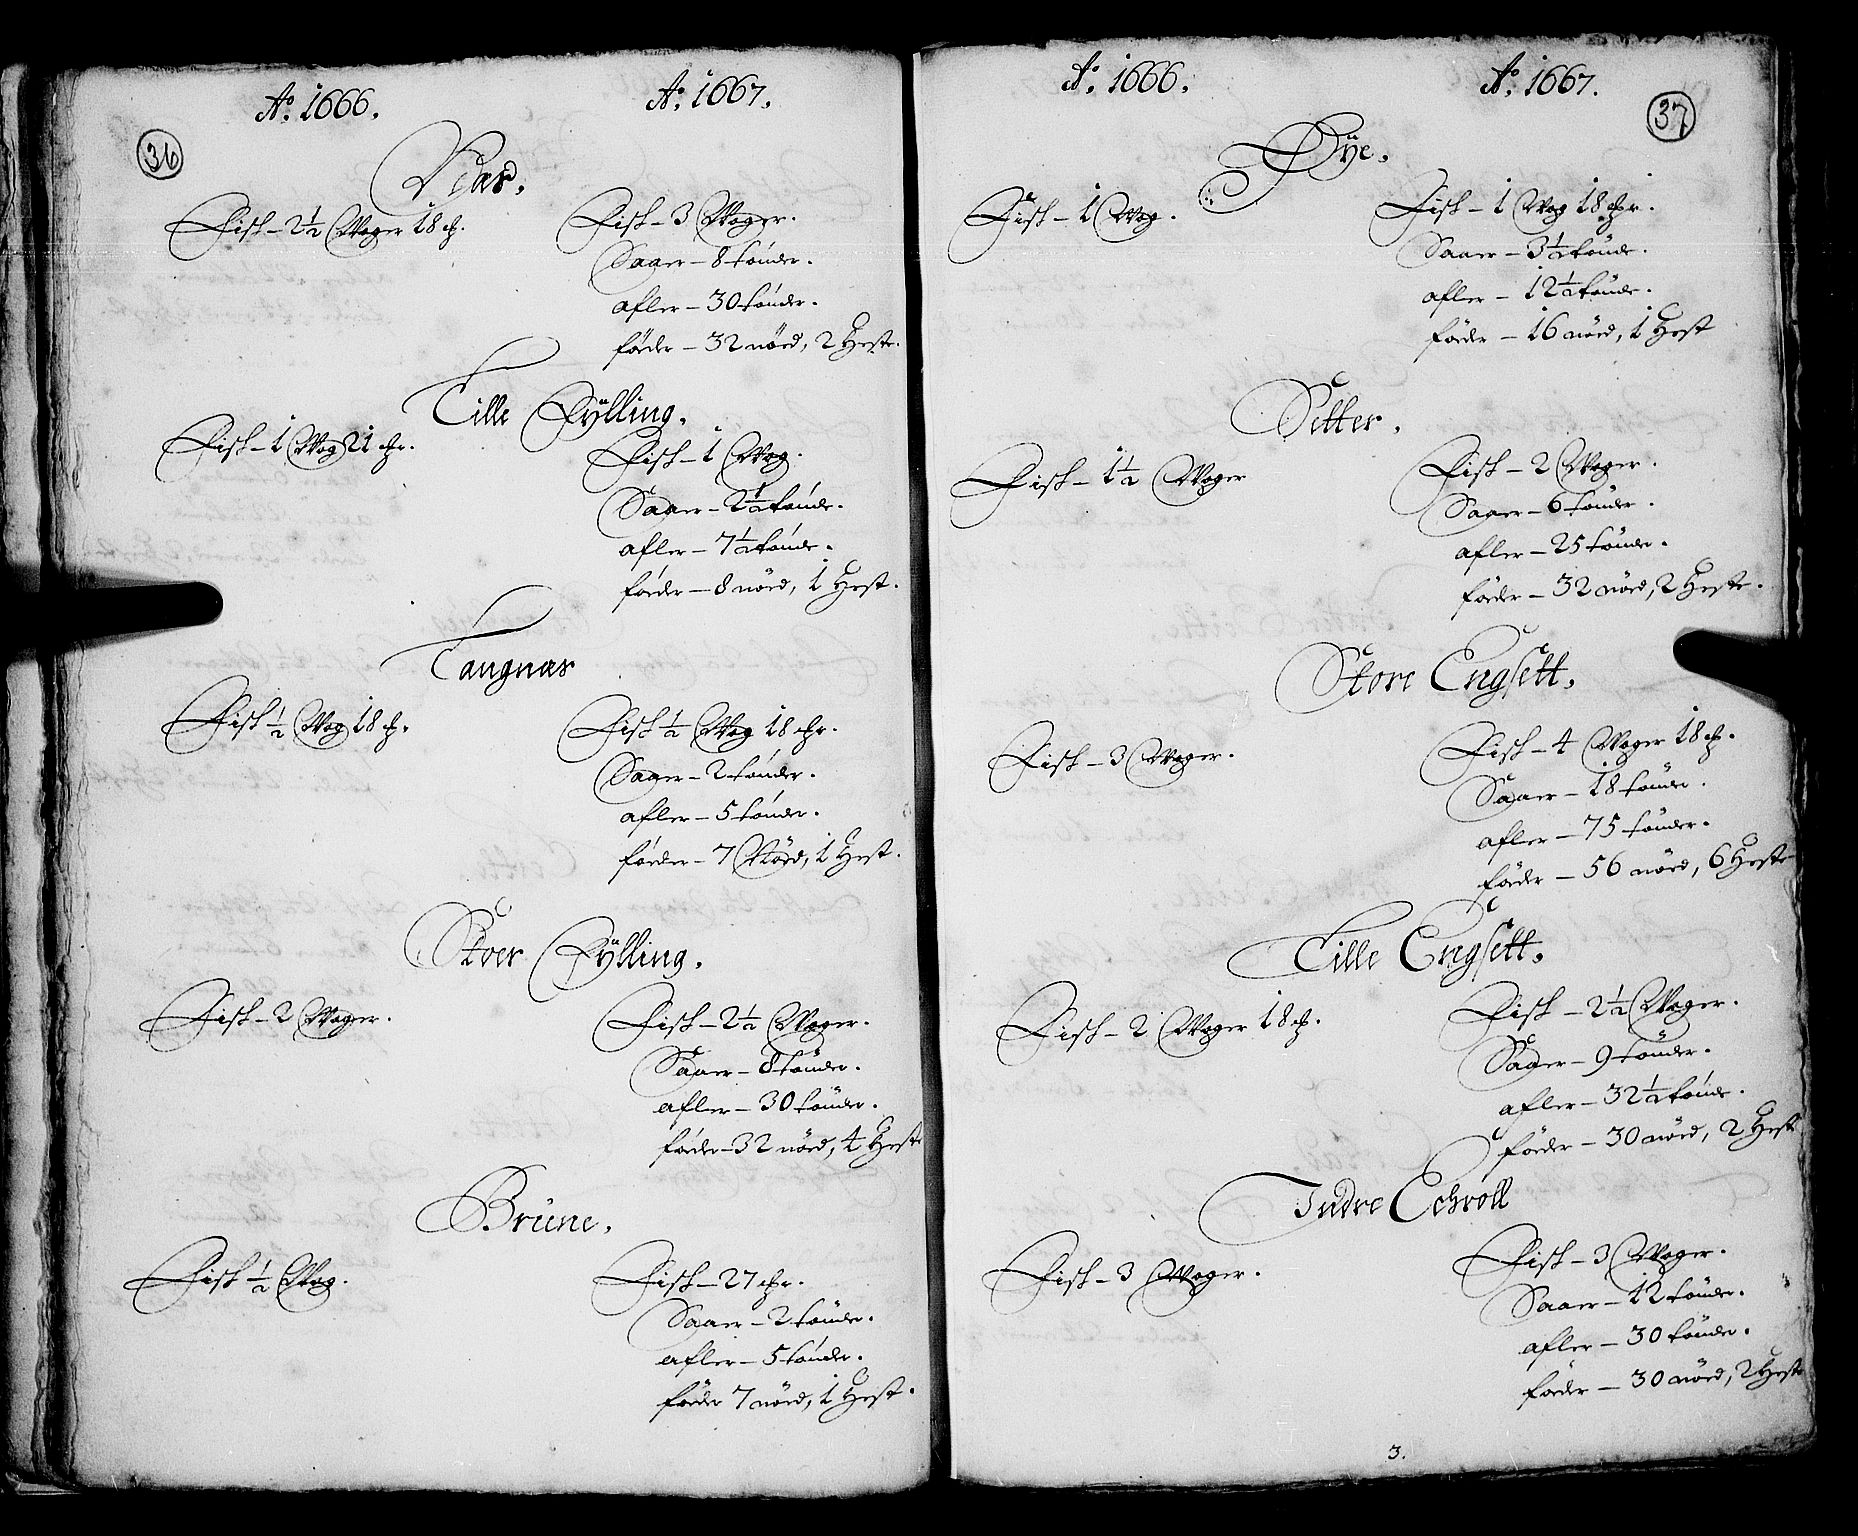 Ao. 1666. Ao. 1667.
36
Viar.
Fisk - 2½ Woger 18 ℔.
Fisk - 3 Woger.
Saaer - 8 tönder.
afler - 30 tönder.
föder - 32 nöed, 2 Heste.
Lille Fÿlling.
Fisk - 1 Wog 21 ℔r.
Fisk - 1 Wog.
Saaer - 2½ tönde.
afler - 7½ tönde.
föder - 8 nöed, 1 Hest.
Langnæs
Fisk ½ Wog 18 ℔.
Fisk ½ Wog 18 ℔r.
Saaer - 2 tönder.
afler - 5 tönder.
föeder - 7 Nöed, 1 Hest.
Stoer Fÿlling.
Fisk - 2 Woger.
Fisk - 2½ Woger.
Saaer - 8 tönder.
afler - 30 tönder.
föder - 32 nöed, 4 Heste
Brüne.
Fisk ½ Wog.
Fisk - 27 ℔r.
Saaer - 2 tönder.
afler - 5 tönder.
föder 7 nöed, 1 Hest.
Ao. 1666. Ao. 1667.
37
Dÿe.
Fisk - 1 Wog.
Fisk - 1 Wog 18 ℔r.
Saaer - 3½ tönde.
afler - 12½ tönde.
föder - 16 nöed, 1 Hest
Setter.
Fisk - 1½ Woger
Fisk - 2 Woger.
Saaer - 6 tönder.
afler - 25 tönder.
föder - 32 nöed, 2 Heste.
Store Engsett.
Fisk - 3 Woger.
Fisk - 4 Woger 18 ℔.
Saaer - 18 tönder.
afler - 75 tönder.
föder - 56 nöed, 6 Heste
Lille Engsett.
Fisk - 2 Woger 18 ℔.
Fisk - 2½ Woger.
Saaer - 9 tönder.
afler - 32½ tönde.
föeder - 30 nöed, 2 Heste
Indre Echroll
Fisk - 3 Woger.
Fisk - 3 Woger.
Saaer - 12 tönder.
afler - 30 tönder.
föder - 30 nöed, 2 Heste
3.